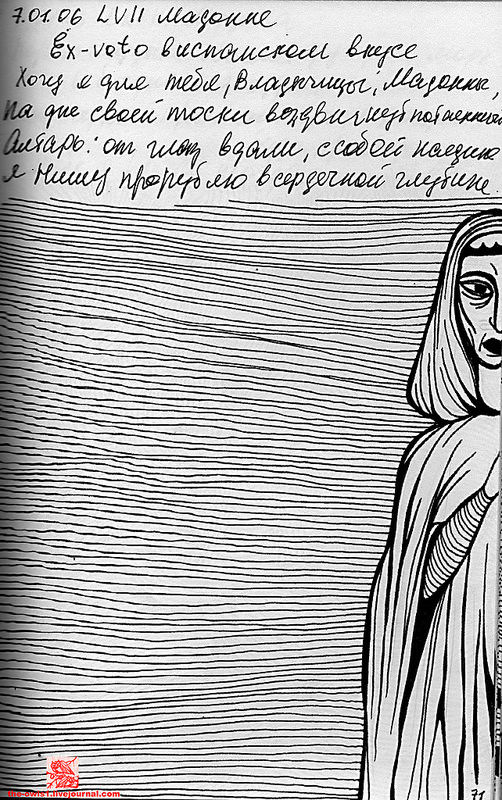 7.01.06 LVII Мадонне
Ex-voto в испанском вкусе
Хочу я для тебя, Владычицы, Мадонны,
На дне своей тоски воздвигнуть потаенный
Алтарь: от глаз вдали, с собой наедине
я Нишу прорублю в сердечной глубине
the-owls1.livejournal.com
71